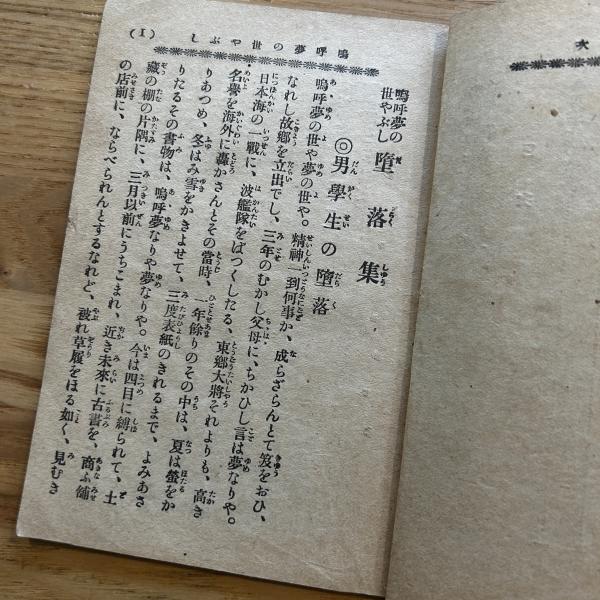 (1) 嗚呼夢の世やぶし
嗚呼夢の世やぶし 墮落集
◎男學生の墮落
嗚呼夢の世や夢の世や。精神一到何事か、成らざらんとて笈をおひ、
なれし故郷を立出でし、三年のむかし父母に、ちかひし言は夢なりや。
日本海の一戰に、波艦隊をばつくしたる、東郷大將それよりも、高き
名譽を海外に轟かさんとその當時、一年餘りのその中は、夏は螢をか
りあつめ、冬はみ雪をかきよせて、三度表紙のきれるまで、よみあさ
りたるその書物は、嗚呼夢なりや夢なりや。今は四目に縛られて、土
藏の棚の片隅に、三月以前にうちこまれ、近き未來に古書を、商ふ舗
の店前に、ならべられんとするなれど、破れ草履をほる如く、見むき